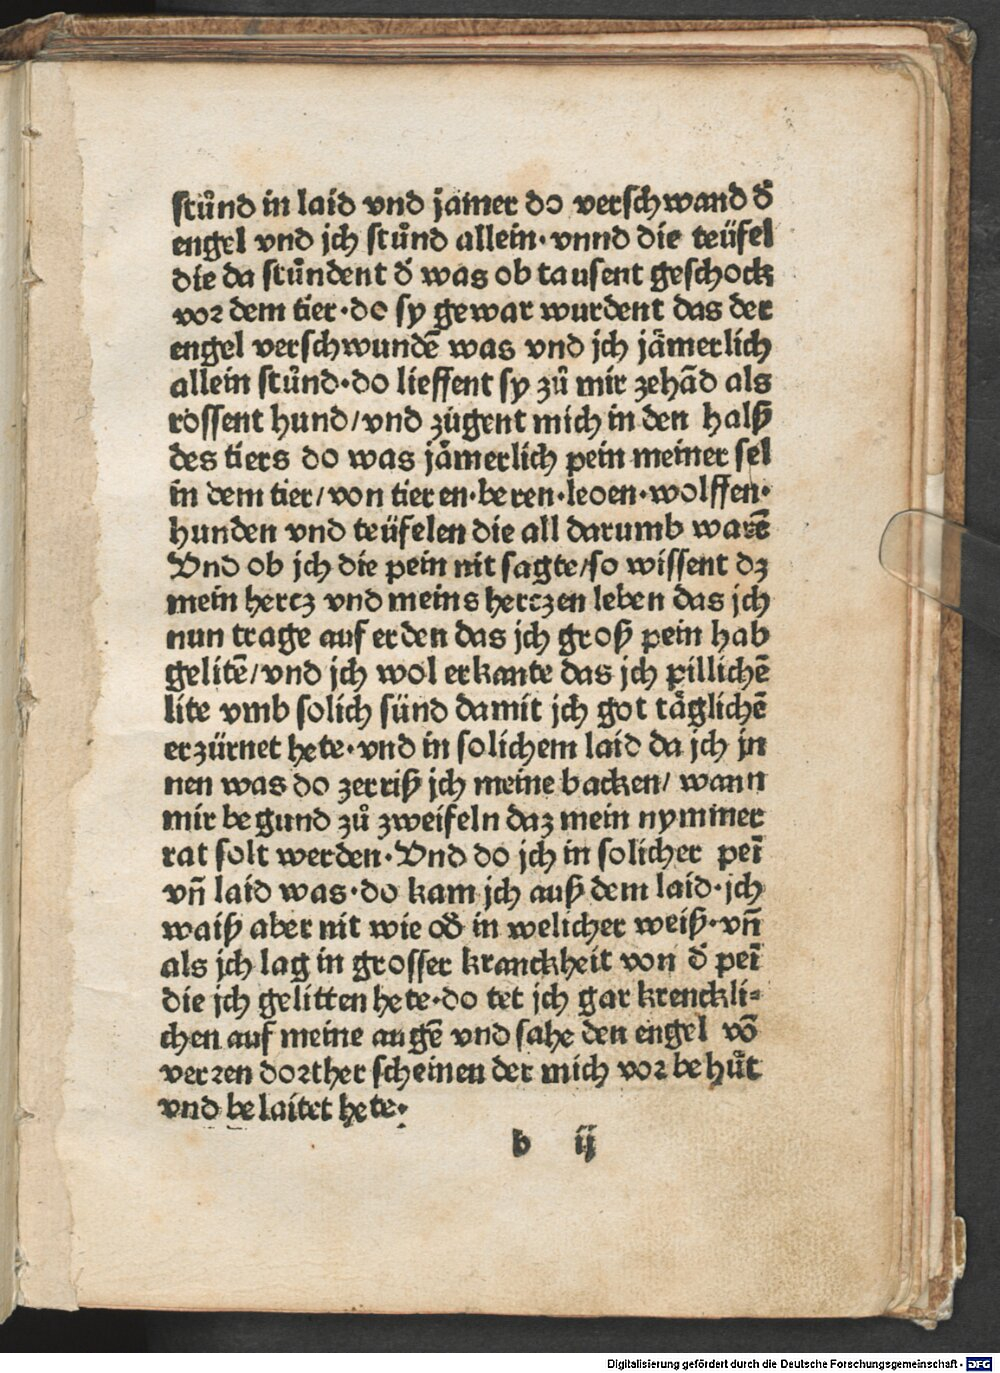 stůnd in laid vnd jamer do verschwand d̓
engel vnd jch stůnd allein·vnnd die teüfel
die da stůndent d̓ was ob tausent geschock
vor dem tier·do sy gewar wurdent das der
engel verschwundē was vnd jch jämerlich
allein stůnd·do lieffent sy zů mir zehād als
rossent hund/vnd zugent mich in den halß
des tiers do was jämerlich pein meiner sel
in dem tier/von tieren·beren·leoen·wolffen·
hunden vnd teüfelen die all darumb warē
Vnd ob jch die pein nit sagte/so wissent dz
mein hercz vnd meins herczen leben das jch
nun trage auf erden das jch groß pein hab
gelitē/vnd jch wol erkante das jch pillichē
lite vmb solich sünd damit jch got täglichē
erzürnet hete·vnd in solichem laid da jch jn
nen was do zerriß jch meine backen/ wann
mir begund zů zweifeln daz mein nymmer
rat solt werden·Vnd do jch in solicher peī
vn̄ laid was·do kam jch auß dem laid·jch
waiß aber nit wie od̓ in welicher weiß·vn̄
als jch lag in grosser kranckheit von d̓ peī
die jch gelitten hete·do tet jch gar krenckli=
chen auf meine augē vnd sahe den engel vō
verren dorther scheinen der mich vor behůt
vnd belaitet hete·
b ij
Digitalisierung gefördert durch die Deutsche Forschungsgemeinschaft - DFG